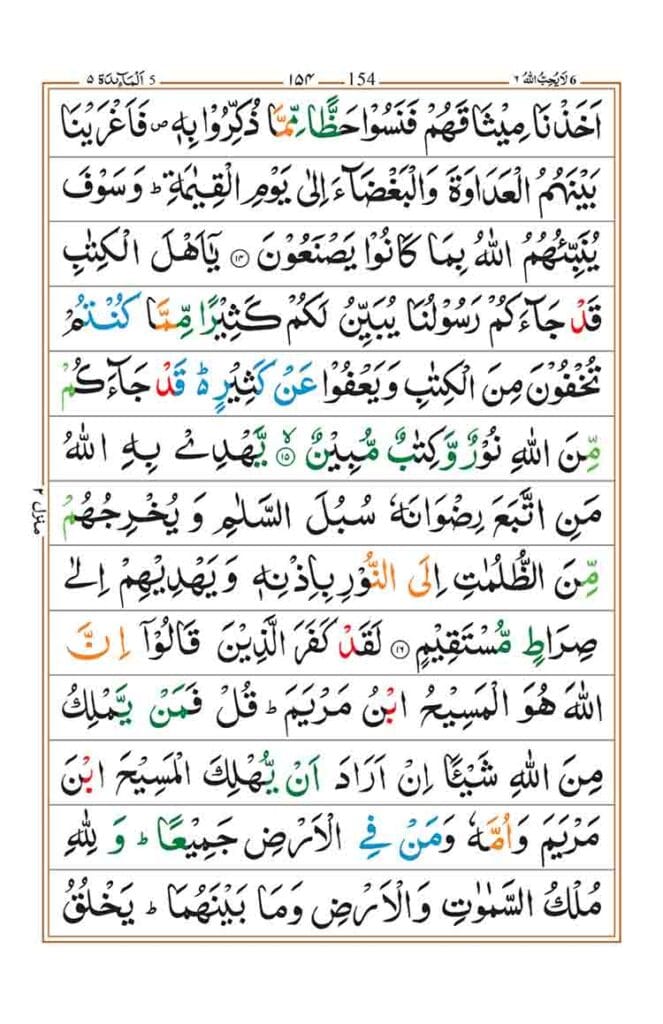 6 لَا يُحِبُّ اللهُ ٦ 154 ۱۵۴ 5 اَلْمَآئِدَة ۵
اَخَذْنَا مِيْثَاقَهُمْ فَنَسُوْا حَظًّا مِّمَّا ذُكِّرُوْا بِهٖ ص فَاَغْرَيْنَا
بَيْنَهُمُ الْعَدَاوَةَ وَالْبَغْضَآءَ اِلٰى يَوْمِ الْقِيٰمَةِ ؕ وَسَوْفَ
يُنَبِّئُهُمُ اللهُ بِمَا كَانُوْا يَصْنَعُوْنَ ۱۴ يٰۤاَهْلَ الْكِتٰبِ
قَدْ جَآءَكُمْ رَسُوْلُنَا يُبَيِّنُ لَكُمْ كَثِيْرًا مِّمَّا كُنْتُمْ
تُخْفُوْنَ مِنَ الْكِتٰبِ وَيَعْفُوْا عَنْ كَثِيْرٍ ؕ قَدْ جَآءَكُمْ
مِّنَ اللهِ نُوْرٌ وَّكِتٰبٌ مُّبِيْنٌ ۱۵ ۙ يَّهْدِيْ بِهِ اللهُ
مَنِ اتَّبَعَ رِضْوَانَهٗ سُبُلَ السَّلٰمِ وَيُخْرِجُهُمْ
مِّنَ الظُّلُمٰتِ اِلَى النُّوْرِ بِاِذْنِهٖ وَيَهْدِيْهِمْ اِلٰى
صِرَاطٍ مُّسْتَقِيْمٍ ۱۶ لَقَدْ كَفَرَ الَّذِيْنَ قَالُوْۤا اِنَّ
اللهَ هُوَ الْمَسِيْحُ ابْنُ مَرْيَمَ ؕ قُلْ فَمَنْ يَّمْلِكُ
مِنَ اللهِ شَيْـًٔا اِنْ اَرَادَ اَنْ يُّهْلِكَ الْمَسِيْحَ ابْنَ
مَرْيَمَ وَاُمَّهٗ وَمَنْ فِي الْاَرْضِ جَمِيْعًا ؕ وَ لِلّٰهِ
مُلْكُ السَّمٰوٰتِ وَالْاَرْضِ وَمَا بَيْنَهُمَا ؕ يَخْلُقُ
منزل ۲